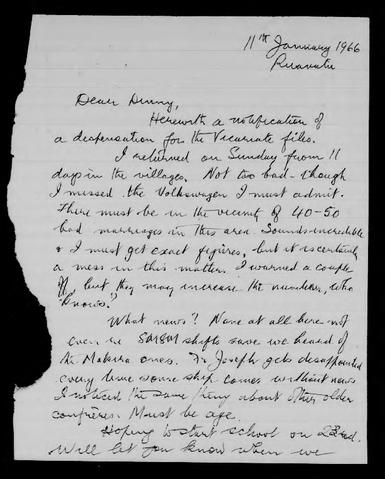 11th January 1966
Ruavatu
Dear Dinny,
Herewith a notification of
a dispensation for the Vicariate files.
I returned on Sunday from 11
days in the villages. Not too bad - though
I missed the Volkswagen I must admit.
There must be in the vicinity of 40-50
bad marriages in this area. Sounds incredible
& I must get exact figures, but it is certainly
a mess in this matter. I warned a couple
off, but they may increase the numbers, who
knows?
What news? None at all here not
even re shifts save we heard of
the Makira ones. Fr Joseph gets disappointed
every time some ship comes without news
I noticed the same thing about other older
confrères. Must be age.
Hoping to start school on 23rd.
Will let you know when we